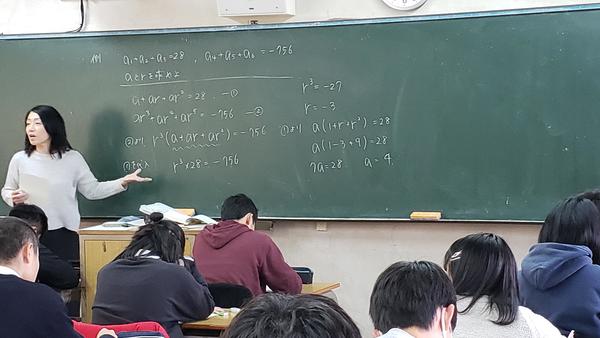 例 a₁+a₂+a₃=28 , a₄+a₅+a₆=-756
aとrを求めよ
a+ar+ar²=28 …①
ar³+ar⁴+ar⁵=-756 …②
②より, r³(a+ar+ar²)=-756
①を代入 r³×28=-756
r³=-27
r=-3
①より a(1+r+r²)=28
a(1-3+9)=28
7a=28 a=4.